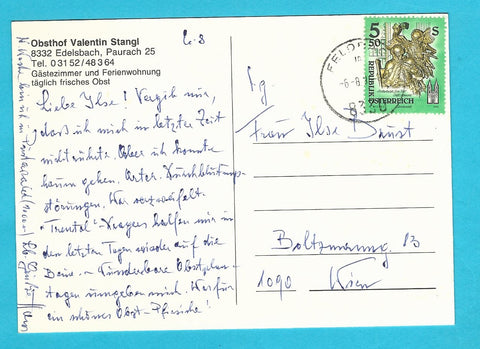 Obsthof Valentin Stangl
8332 Edelsbach, Paurach 25
Tel. 0 31 52 / 48 3 64
Gästezimmer und Ferienwohnung
täglich frisches Obst
Liebe Ilse! Verzeih mir,
dass ich mich in letzter Zeit
nicht rührte. Aber ich konnte
kaum gehen. Arter. Durchblutungs-
störungen. War verzweifelt.
"Trental"-Dragees halfen mir in
den letzten Tagen wieder auf die
Beine. – Wunderbare Obstplan-
tagen umgeben mich. Was für
ein schönes Obst – Pfirsiche!
FELDB
-6.-8.
8330
5 S
50
REPUBLIK
ÖSTERREICH
Frau Ilse
Boltzmanng. 13
1090 Wien